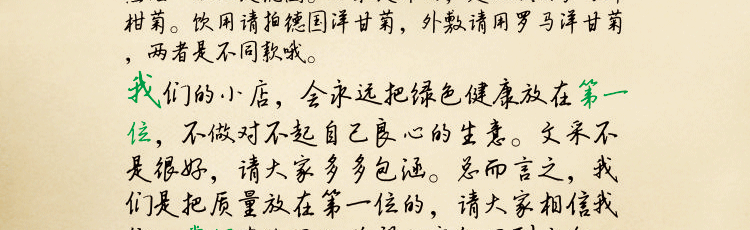 柑菊。饮用请拍德国洋甘菊，外敷请用罗马洋甘菊
，两者是不同款哦。
我们的小店，会永远把绿色健康放在第一
位，不做对不起自己良心的生意。文采不
是很好，请大家多多包涵。总而言之，我
们是把质量放在第一位的，请大家相信我